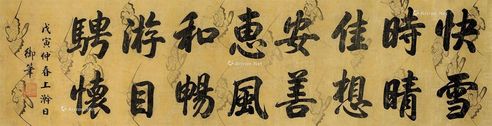 快雪
時晴
佳想
安善
惠風
和暢
游目
騁懷
戊寅仲春上澣日
御筆